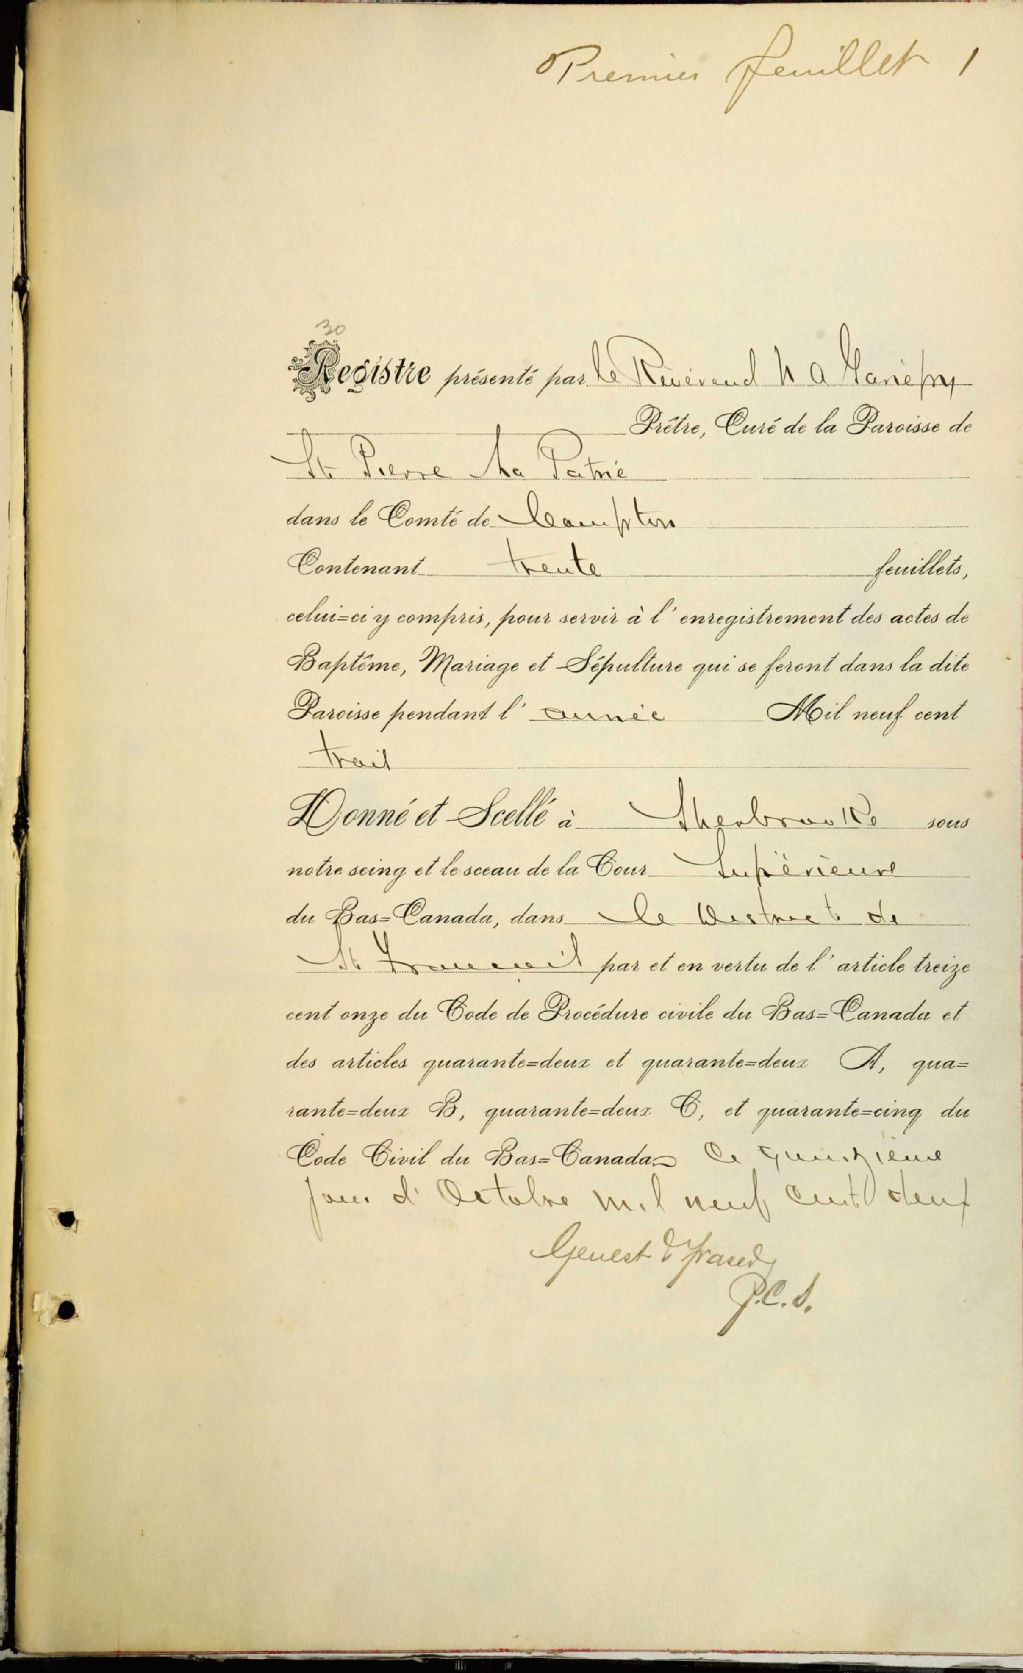 Premier feuillet 1
30
Registre présenté par le Révérend N A Gariépy
Prêtre, Curé de la Paroisse de
St Pierre La Patrie
dans le Comté de Compton
Contenant trente feuillets,
celui=ci y compris, pour servir à l'enregistrement des actes de
Baptême, Mariage et Sépulture qui se feront dans la dite
Paroisse pendant l'année Mil neuf cent
trois
Donné et Scellé à Sherbrooke sous
notre seing et le sceau de la Cour Supérieure
du Bas=Canada, dans le District de
St François par et en vertu de l'article treize
cent onze du Code de Procédure civile du Bas=Canada et
des articles quarante=deux et quarante=deux A, qua=
rante=deux B, quarante=deux C, et quarante=cinq du
Code Civil du Bas=Canada Ce quinzième
jour d'Octobre mil neuf cent deux
Genest & Fraser
P.C.S.